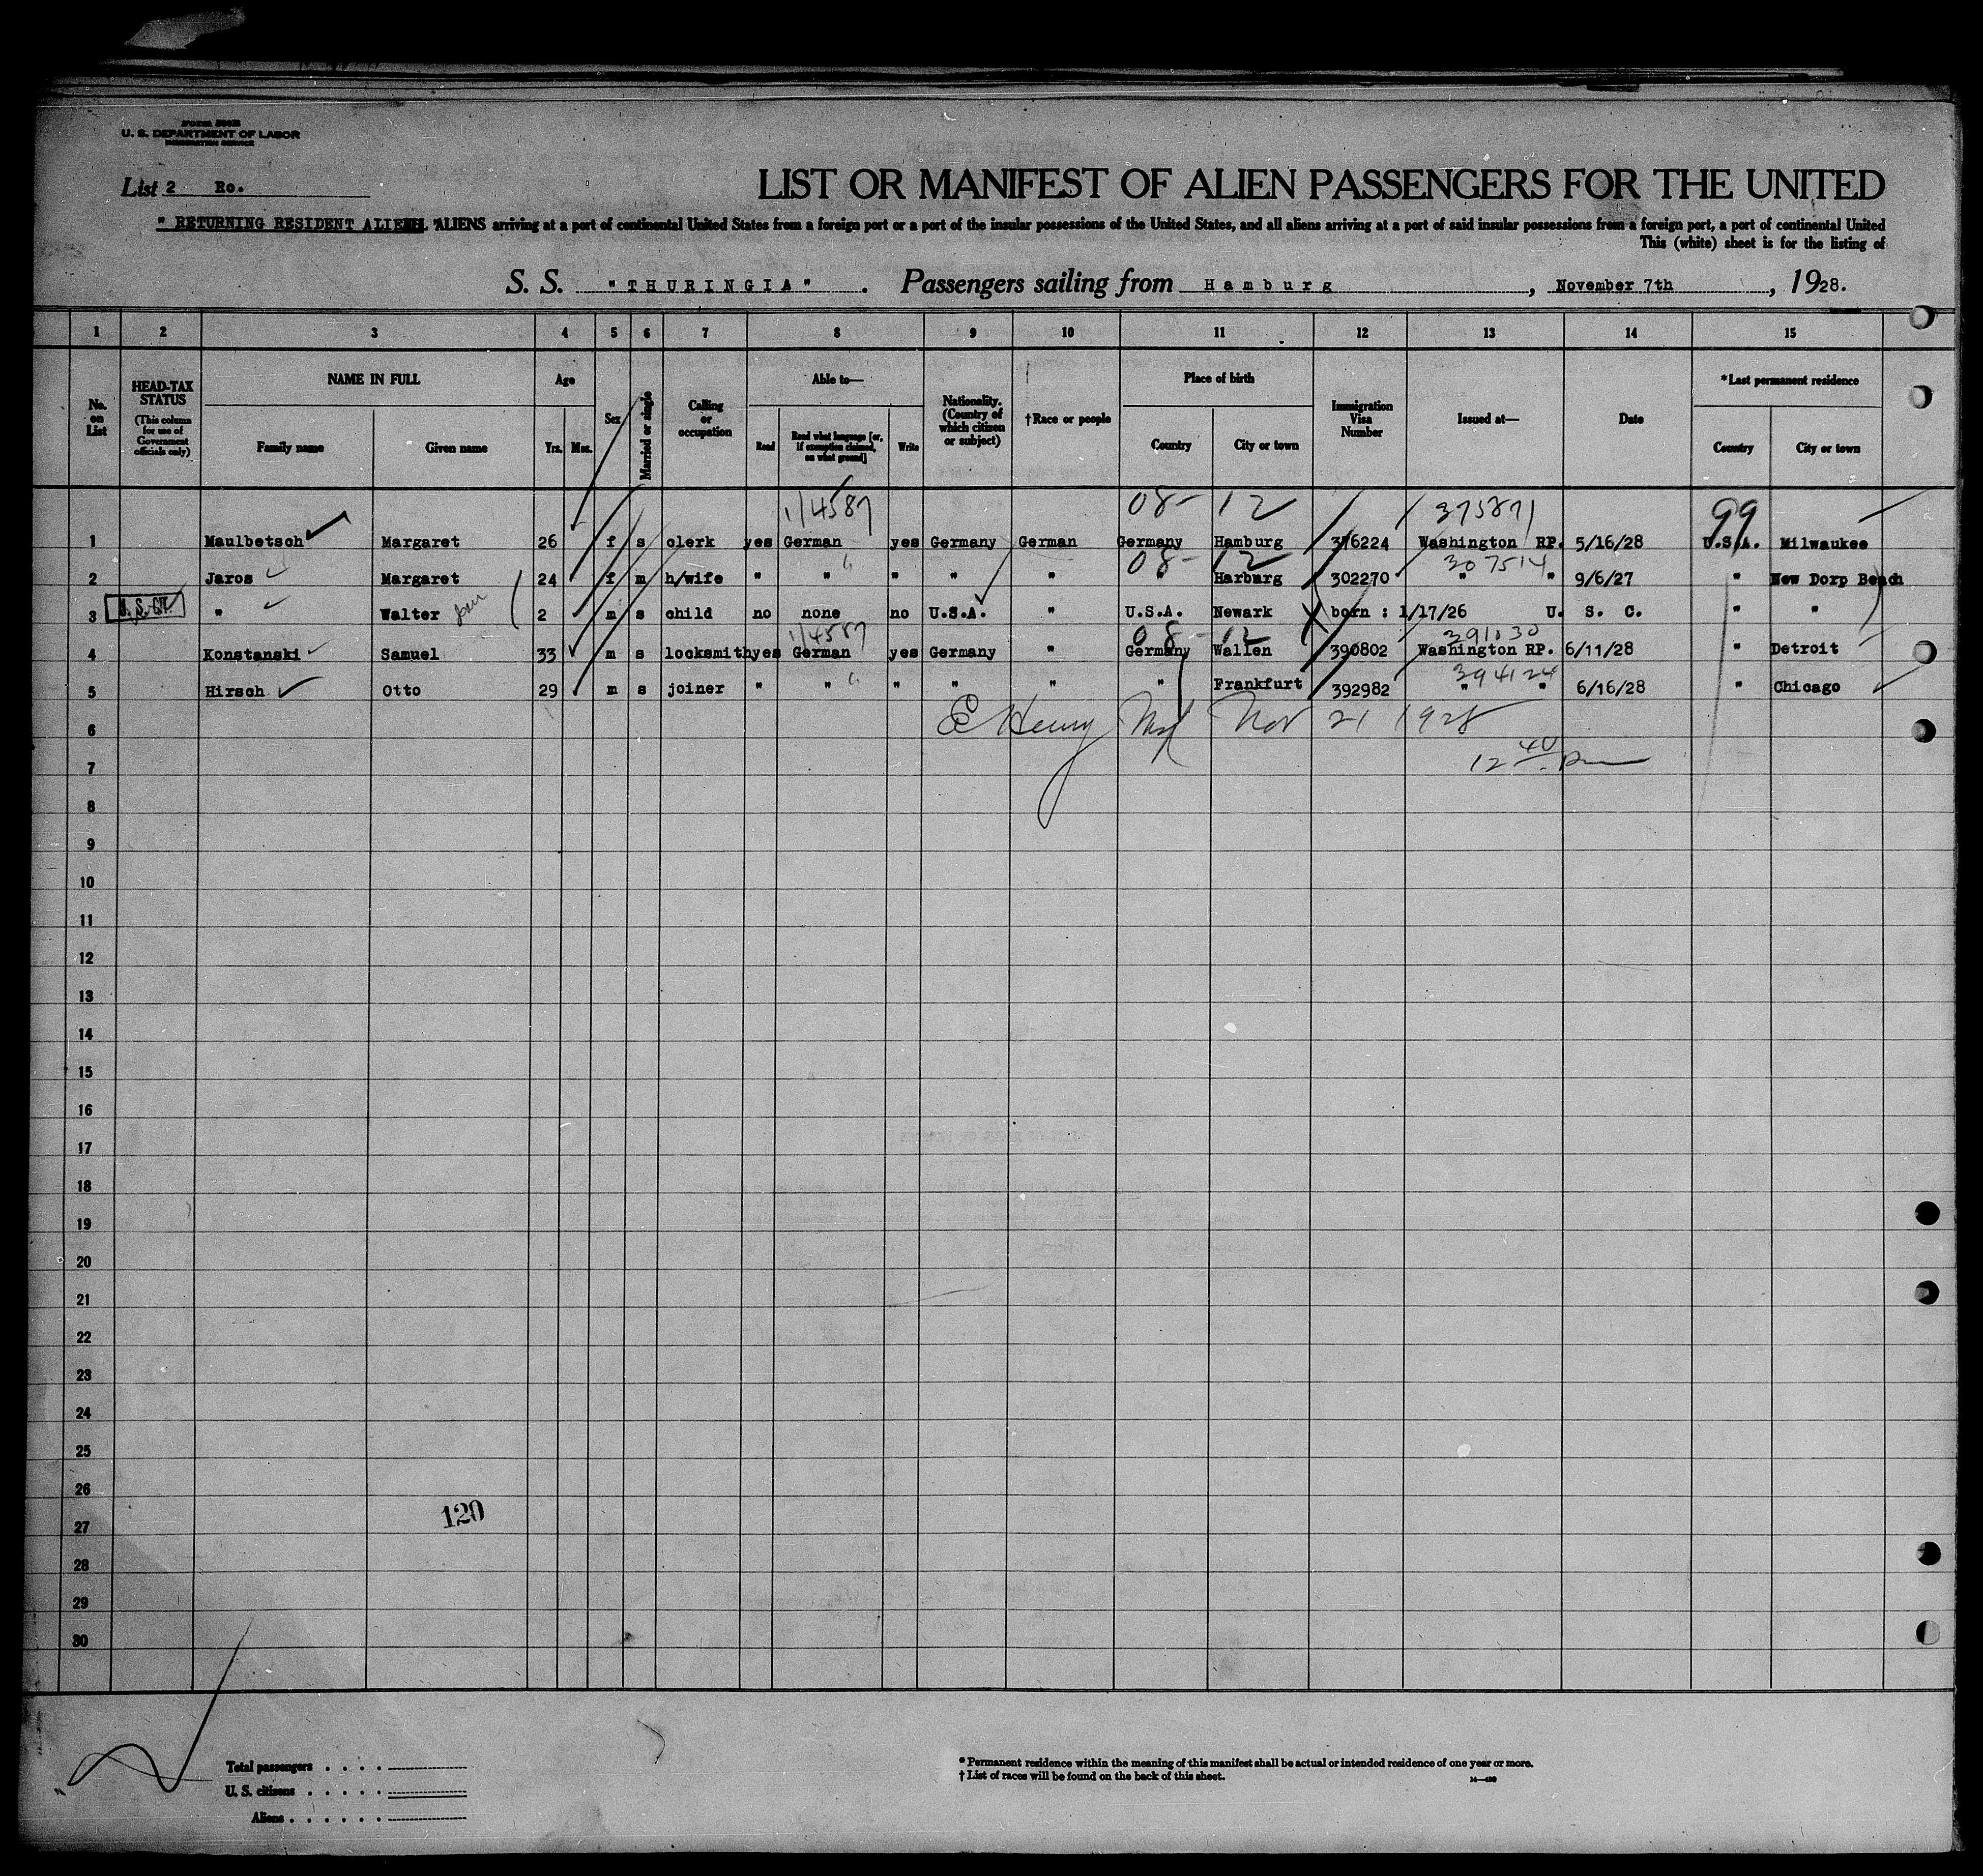 U. S. DEPARTMENT OF LABOR
IMMIGRATION SERVICE
List 2 Ro.
LIST OR MANIFEST OF ALIEN PASSENGERS FOR THE UNITED
" RETURNING RESIDENT ALIEN ALIENS arriving at a port of continental United States from a foreign port or a port of the insular possessions of the United States, and all aliens arriving at a port of said insular possessions from a foreign port, a port of continental United
This (white) sheet is for the listing of
S. S. "THURINGIA" . Passengers sailing from Hamburg , November 7th , 1928.
1 2 3 4 5 6 7 8 9 10 11 12 13 14 15
No. on List
HEAD-TAX STATUS (This column for use of Government officials only)
NAME IN FULL
Family name Given name
Age
Yrs. Mos.
Sex
Married or single
Calling or occupation
Able to—
Read
Read what language [or, if exemption claimed, on what ground]
Write
Nationality. (Country of which citizen or subject)
†Race or people
Place of birth
Country City or town
Immigration Visa Number
Issued at—
Date
*Last permanent residence
Country City or town
1/4587 08- 12 375871 99
1 Maulbetsch Margaret 26 f s clerk yes German yes Germany German Germany Hamburg 376224 Washington RP. 5/16/28 U.S.A. Milwaukee
08- 12 307514
2 Jaros Margaret 24 f m h/wife " " " " " " Harburg 302270 " " 9/6/27 " New Dorp Beach
3 U. S. CIT. " Walter 2 m s child no none no U.S.A. " U.S.A. Newark born : 1/17/26 U. S. C. " "
1/4587 08- 12 391030
4 Konstanski Samuel 33 m s locksmith yes German yes Germany " Germany Wallen 390802 Washington RP. 6/11/28 " Detroit
394124
5 Hirsch Otto 29 m s joiner " " " " " " Frankfurt 392982 " " 6/16/28 " Chicago
6 E Henry Nov 21 1928
7 12 40 pm
8
9
10
11
12
13
14
15
16
17
18
19
20
21
22
23
24
25
26
120
27
28
29
30
Total passengers . . . .
U. S. citizens . . . . .
Aliens . . . . . .
* Permanent residence within the meaning of this manifest shall be actual or intended residence of one year or more.
† List of races will be found on the back of this sheet.